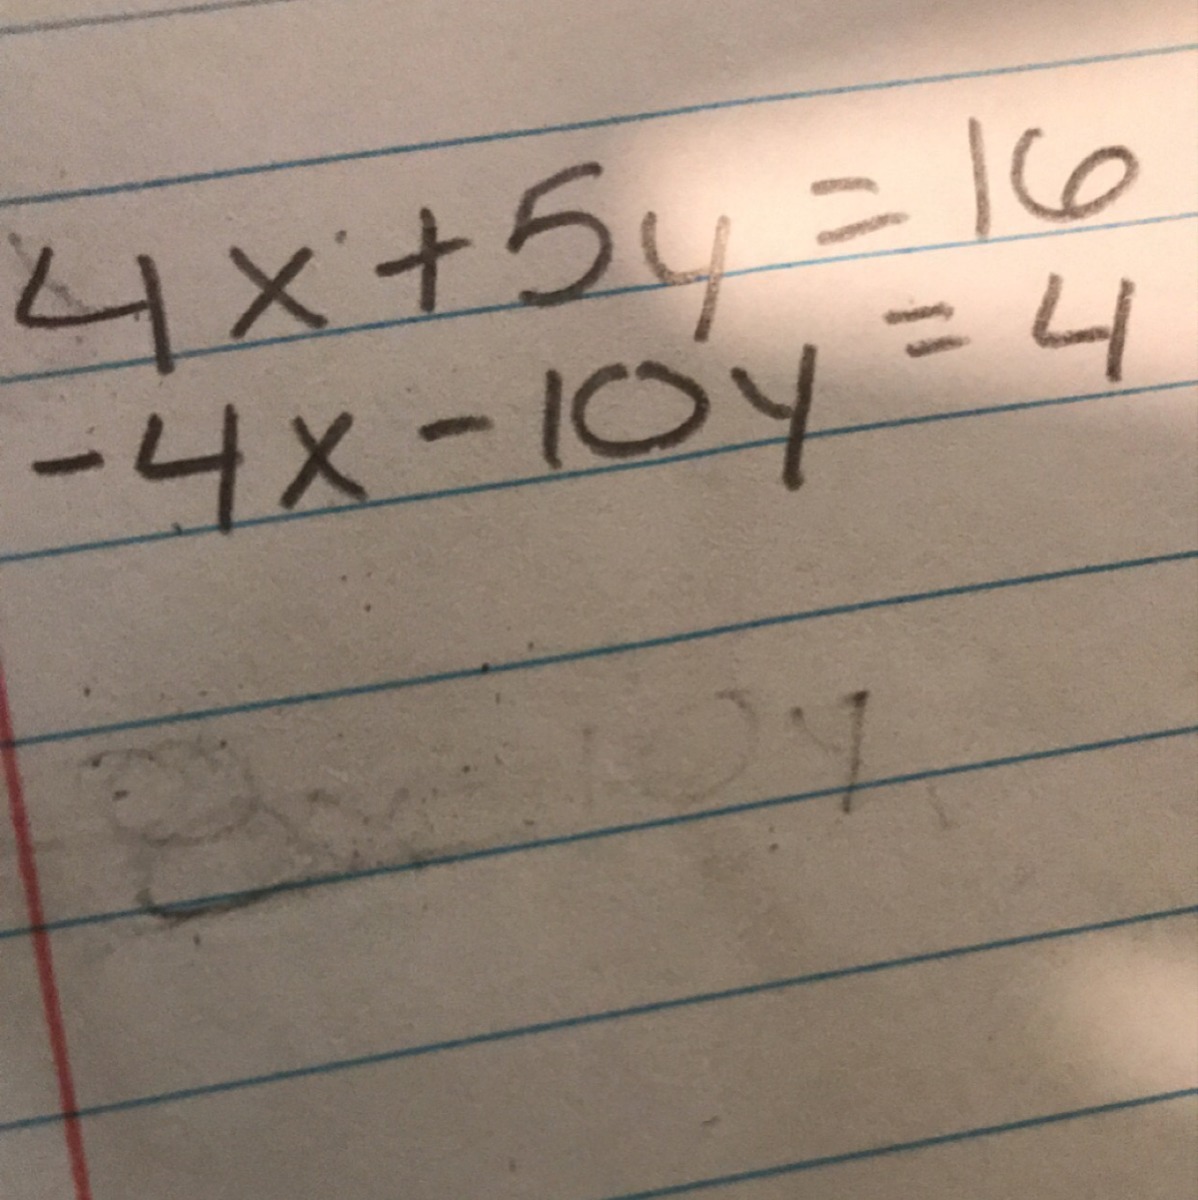 4x + 5y = 16
-4x - 10y = 4